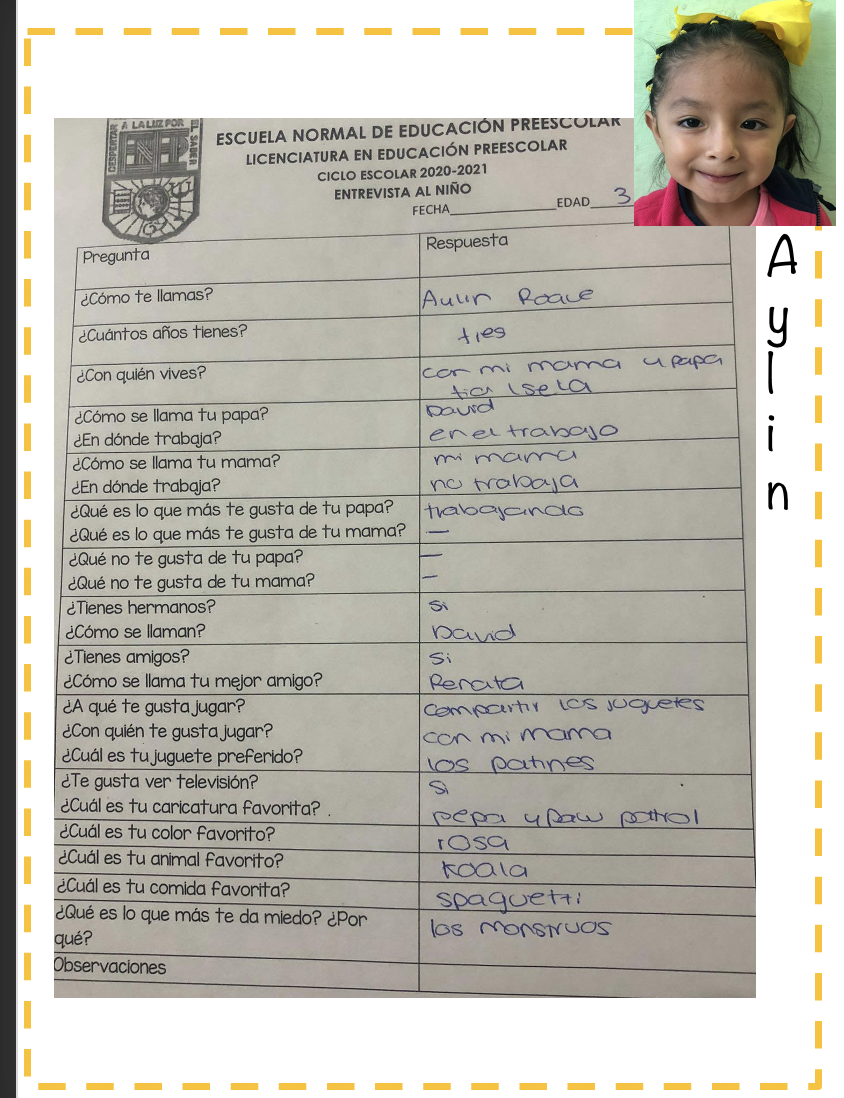 DESPERTAR A LA LUZ POR EL SABER
ENEP
ESCUELA NORMAL DE EDUCACIÓN PREESCOLAR
LICENCIATURA EN EDUCACIÓN PREESCOLAR
CICLO ESCOLAR 2020-2021
ENTREVISTA AL NIÑO
FECHA______________EDAD____3
Aylin
Pregunta Respuesta
¿Cómo te llamas? Aylin Roque
¿Cuántos años tienes? tres
¿Con quién vives? con mi mama y papa
tia
¿Cómo se llama tu papa? David
¿En dónde trabaja? en el trabajo
¿Cómo se llama tu mama? mi mama
¿En dónde trabaja? no trabaja
¿Qué es lo que más te gusta de tu papa? trabajando
¿Qué es lo que más te gusta de tu mama? —
¿Qué no te gusta de tu papa? —
¿Qué no te gusta de tu mama? —
¿Tienes hermanos? si
¿Cómo se llaman? David
¿Tienes amigos? si
¿Cómo se llama tu mejor amigo? Renata
¿A qué te gusta jugar? compartir los juguetes
¿Con quién te gusta jugar? con mi mama
¿Cuál es tu juguete preferido? los patines
¿Te gusta ver televisión? si
¿Cuál es tu caricatura favorita? . pepa y paw patrol
¿Cuál es tu color favorito? rosa
¿Cuál es tu animal favorito? koala
¿Cuál es tu comida favorita? spaguetti
¿Qué es lo que más te da miedo? ¿Por los monstruos
qué?
Observaciones